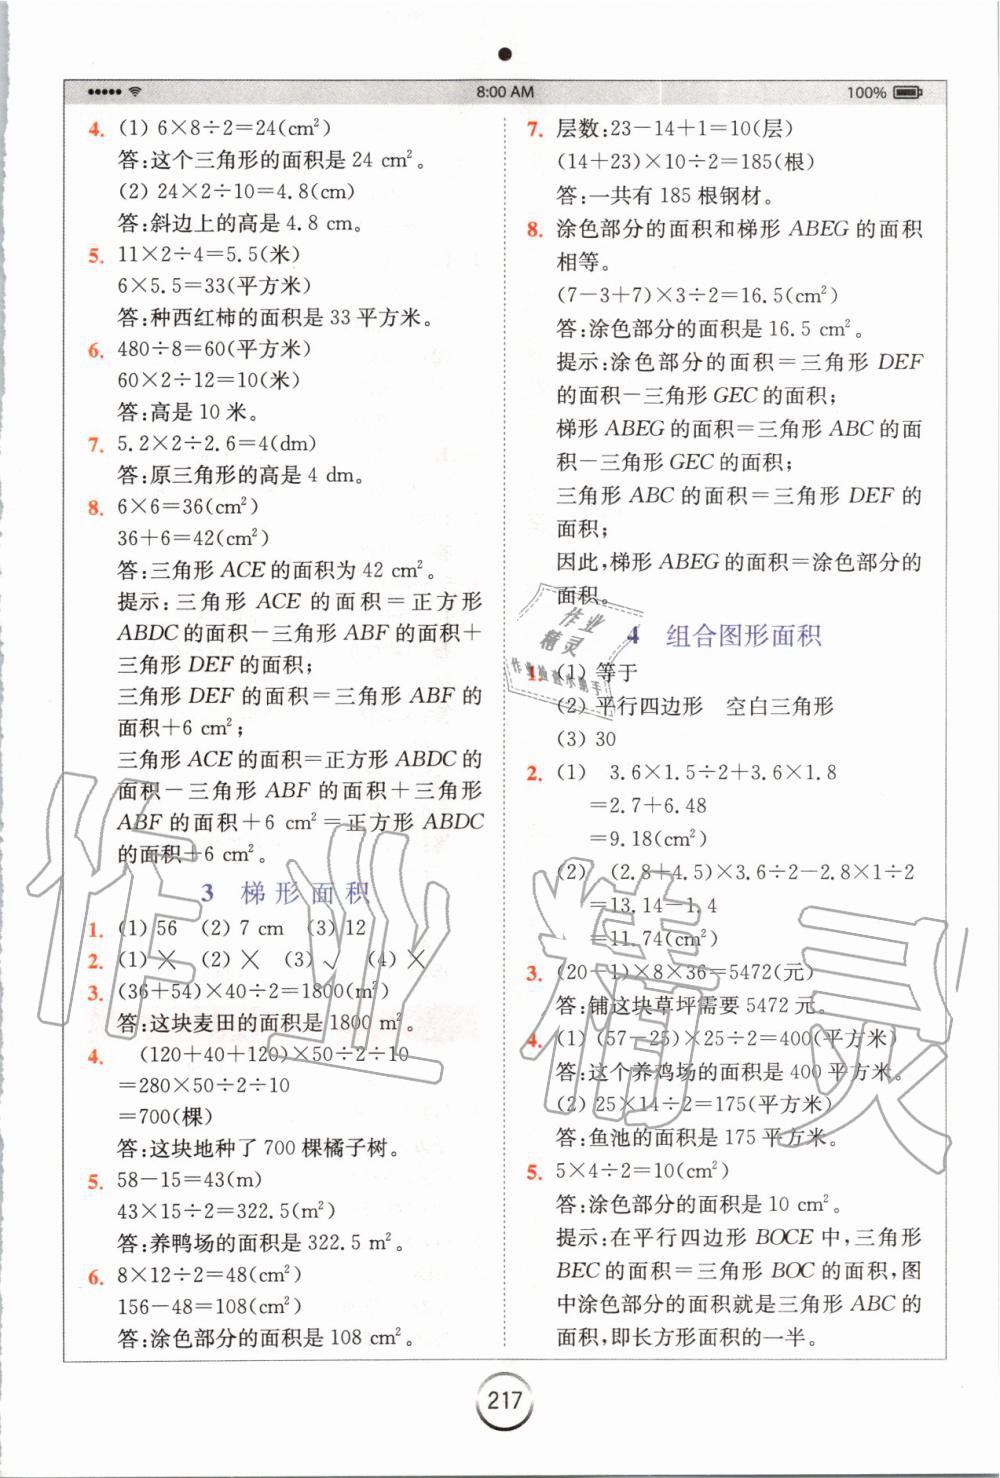 8:00 AM
100%
4. (1) 6×8÷2=24(cm²)
答:这个三角形的面积是 24 cm²。
(2) 24×2÷10=4.8(cm)
答:斜边上的高是 4.8 cm。
5. 11×2÷4=5.5(米)
6×5.5=33(平方米)
答:种西红柿的面积是 33 平方米。
6. 480÷8=60(平方米)
60×2÷12=10(米)
答:高是 10 米。
7. 5.2×2÷2.6=4(dm)
答:原三角形的高是 4 dm。
8. 6×6=36(cm²)
36+6=42(cm²)
答:三角形 ACE 的面积为 42 cm²。
提示:三角形 ACE 的面积=正方形
ABDC 的面积-三角形 ABF 的面积+
三角形 DEF 的面积;
三角形 DEF 的面积=三角形 ABF 的
面积+6 cm²;
三角形 ACE 的面积=正方形 ABDC 的
面积-三角形 ABF 的面积+三角形
ABF 的面积+6 cm²=正方形 ABDC
的面积+6 cm²。
3 梯形面积
1. (1) 56 (2) 7 cm (3) 12
2. (1) × (2) × (3) √ (4) ×
3. (36+54)×40÷2=1800(m²)
答:这块麦田的面积是 1800 m²。
4. (120+40+120)×50÷2÷10
=280×50÷2÷10
=700(棵)
答:这块地种了 700 棵橘子树。
5. 58-15=43(m)
43×15÷2=322.5(m²)
答:养鸭场的面积是 322.5 m²。
6. 8×12÷2=48(cm²)
156-48=108(cm²)
答:涂色部分的面积是 108 cm²。
7. 层数:23-14+1=10(层)
(14+23)×10÷2=185(根)
答:一共有 185 根钢材。
8. 涂色部分的面积和梯形 ABEG 的面积
相等。
(7-3+7)×3÷2=16.5(cm²)
答:涂色部分的面积是 16.5 cm²。
提示:涂色部分的面积=三角形 DEF
的面积-三角形 GEC 的面积;
梯形 ABEG 的面积=三角形 ABC 的面
积-三角形 GEC 的面积;
三角形 ABC 的面积=三角形 DEF 的
面积;
因此,梯形 ABEG 的面积=涂色部分的
面积。
4 组合图形面积
1. (1) 等于
(2) 平行四边形 空白三角形
(3) 30
2. (1) 3.6×1.5÷2+3.6×1.8
=2.7+6.48
=9.18(cm²)
(2) (2.8+4.5)×3.6÷2-2.8×1÷2
=13.14-1.4
=11.74(cm²)
3. (20-1)×8×36=5472(元)
答:铺这块草坪需要 5472 元。
4. (1) (57-25)×25÷2=400(平方米)
答:这个养鸡场的面积是 400 平方米。
(2) 25×14÷2=175(平方米)
答:鱼池的面积是 175 平方米。
5. 5×4÷2=10(cm²)
答:涂色部分的面积是 10 cm²。
提示:在平行四边形 BOCE 中,三角形
BEC 的面积=三角形 BOC 的面积,图
中涂色部分的面积就是三角形 ABC 的
面积,即长方形面积的一半。
217
作业
精灵
作业精灵